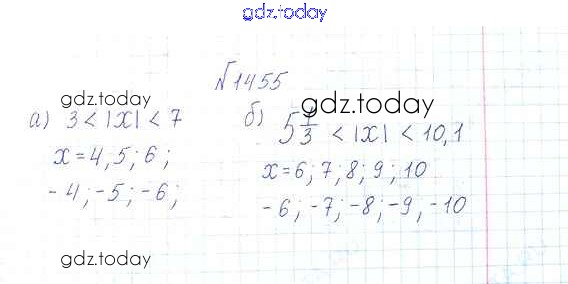 gdz.today
№1455
gdz.today
а) 3 < |x| < 7
x = 4, 5; 6;
-4; -5; -6;
gdz.today
б) 5 1/3 < |x| < 10,1
x = 6; 7; 8; 9; 10
-6; -7; -8; -9, -10
gdz.today